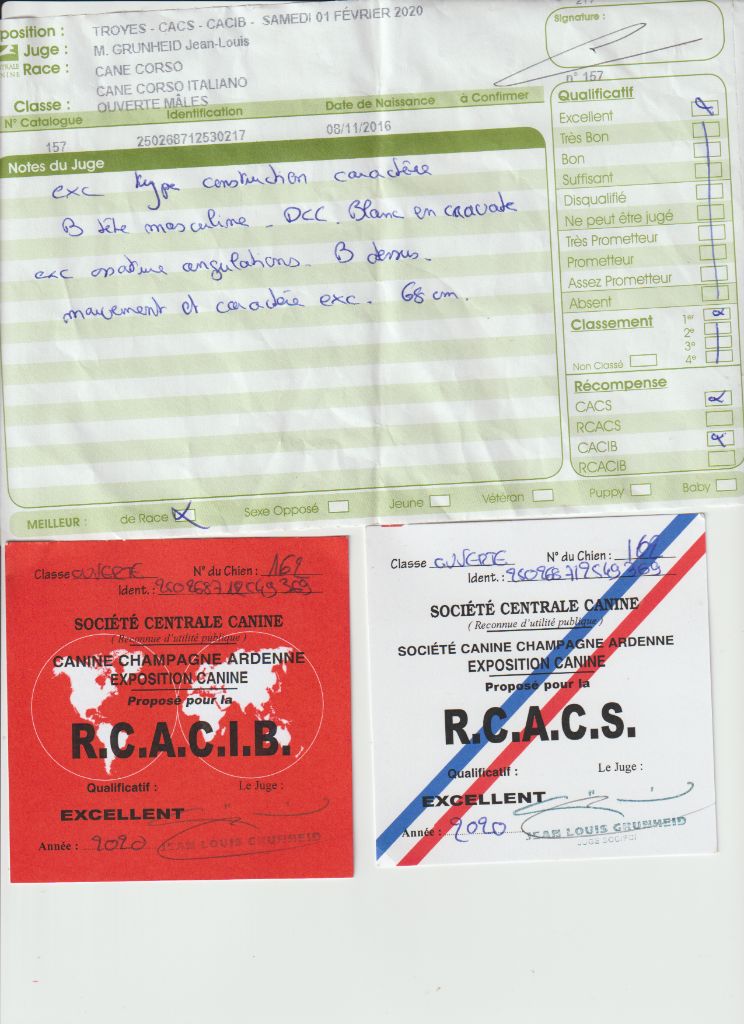 217
position : TROYES - CACS - CACIB - SAMEDI 01 FÉVRIER 2020
Signature :
Juge : M. GRUNHEID Jean-Louis
TRALE
NINE
Race : CANE CORSO
CANE CORSO ITALIANO
n° 157
Classe : OUVERTE MÂLES
N° Catalogue Identification Date de Naissance à Confirmer
157 250268712530217 08/11/2016
Notes du Juge
exc type construction caractère
B tête masculine - DCC. Blanc en cravate
exc ossature angulations. B dessus.
mouvement et caractère exc. 68 cm.
Qualificatif
Excellent
Très Bon
Bon
Suffisant
Disqualifié
Ne peut être jugé
Très Prometteur
Prometteur
Assez Prometteur
Absent
Classement 1er
2e
3e
4e
Non Classé
Récompense
CACS
RCACS
CACIB
RCACIB
MEILLEUR : de Race Sexe Opposé Jeune Vétéran Puppy Baby
Classe OUVERTE N° du Chien : 162
Ident. : 250268712549369
SOCIÉTÉ CENTRALE CANINE
( Reconnue d'utilité publique )
CANINE CHAMPAGNE ARDENNE
EXPOSITION CANINE
Proposé pour la
R.C.A.C.I.B.
Qualificatif : Le Juge :
EXCELLENT
Année : 2020 JEAN LOUIS GRUNHEID
Classe OUVERTE N° du Chien : 162
Ident. : 250268712549369
SOCIÉTÉ CENTRALE CANINE
( Reconnue d'utilité publique )
SOCIÉTÉ CANINE CHAMPAGNE ARDENNE
EXPOSITION CANINE
Proposé pour la
R.C.A.C.S.
Qualificatif : Le Juge :
EXCELLENT
Année : 2020 JEAN LOUIS GRUNHEID